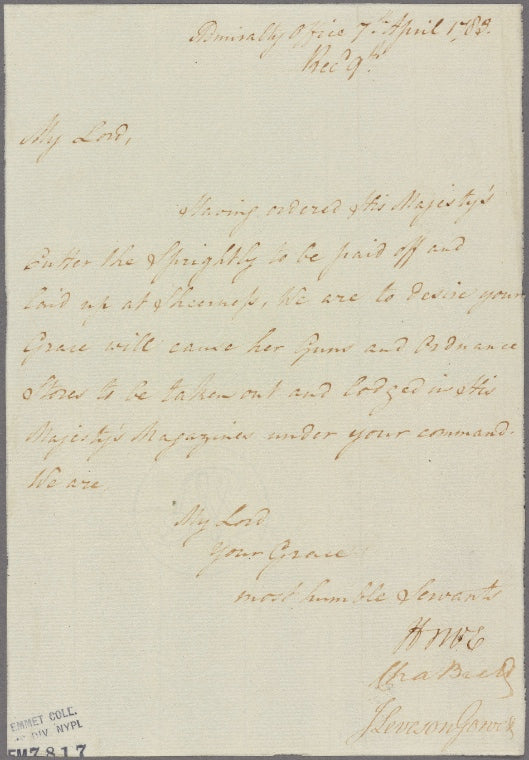 Admiralty Office 7th April 1783.
Recd 9th
My Lord,
Having ordered His Majesty's
Cutter the Sprightly to be paid off and
laid up at Sheerness, We are to desire your
Grace will cause her Guns and Ordnance
Stores to be taken out and lodged in His
Majesty's Magazines under your command.
We are
My Lord
Your Grace
most humble Servants
Howe
Cha Brett
J Leveson Gower
EMMET COLL.
DIV. NYPL
EM7817